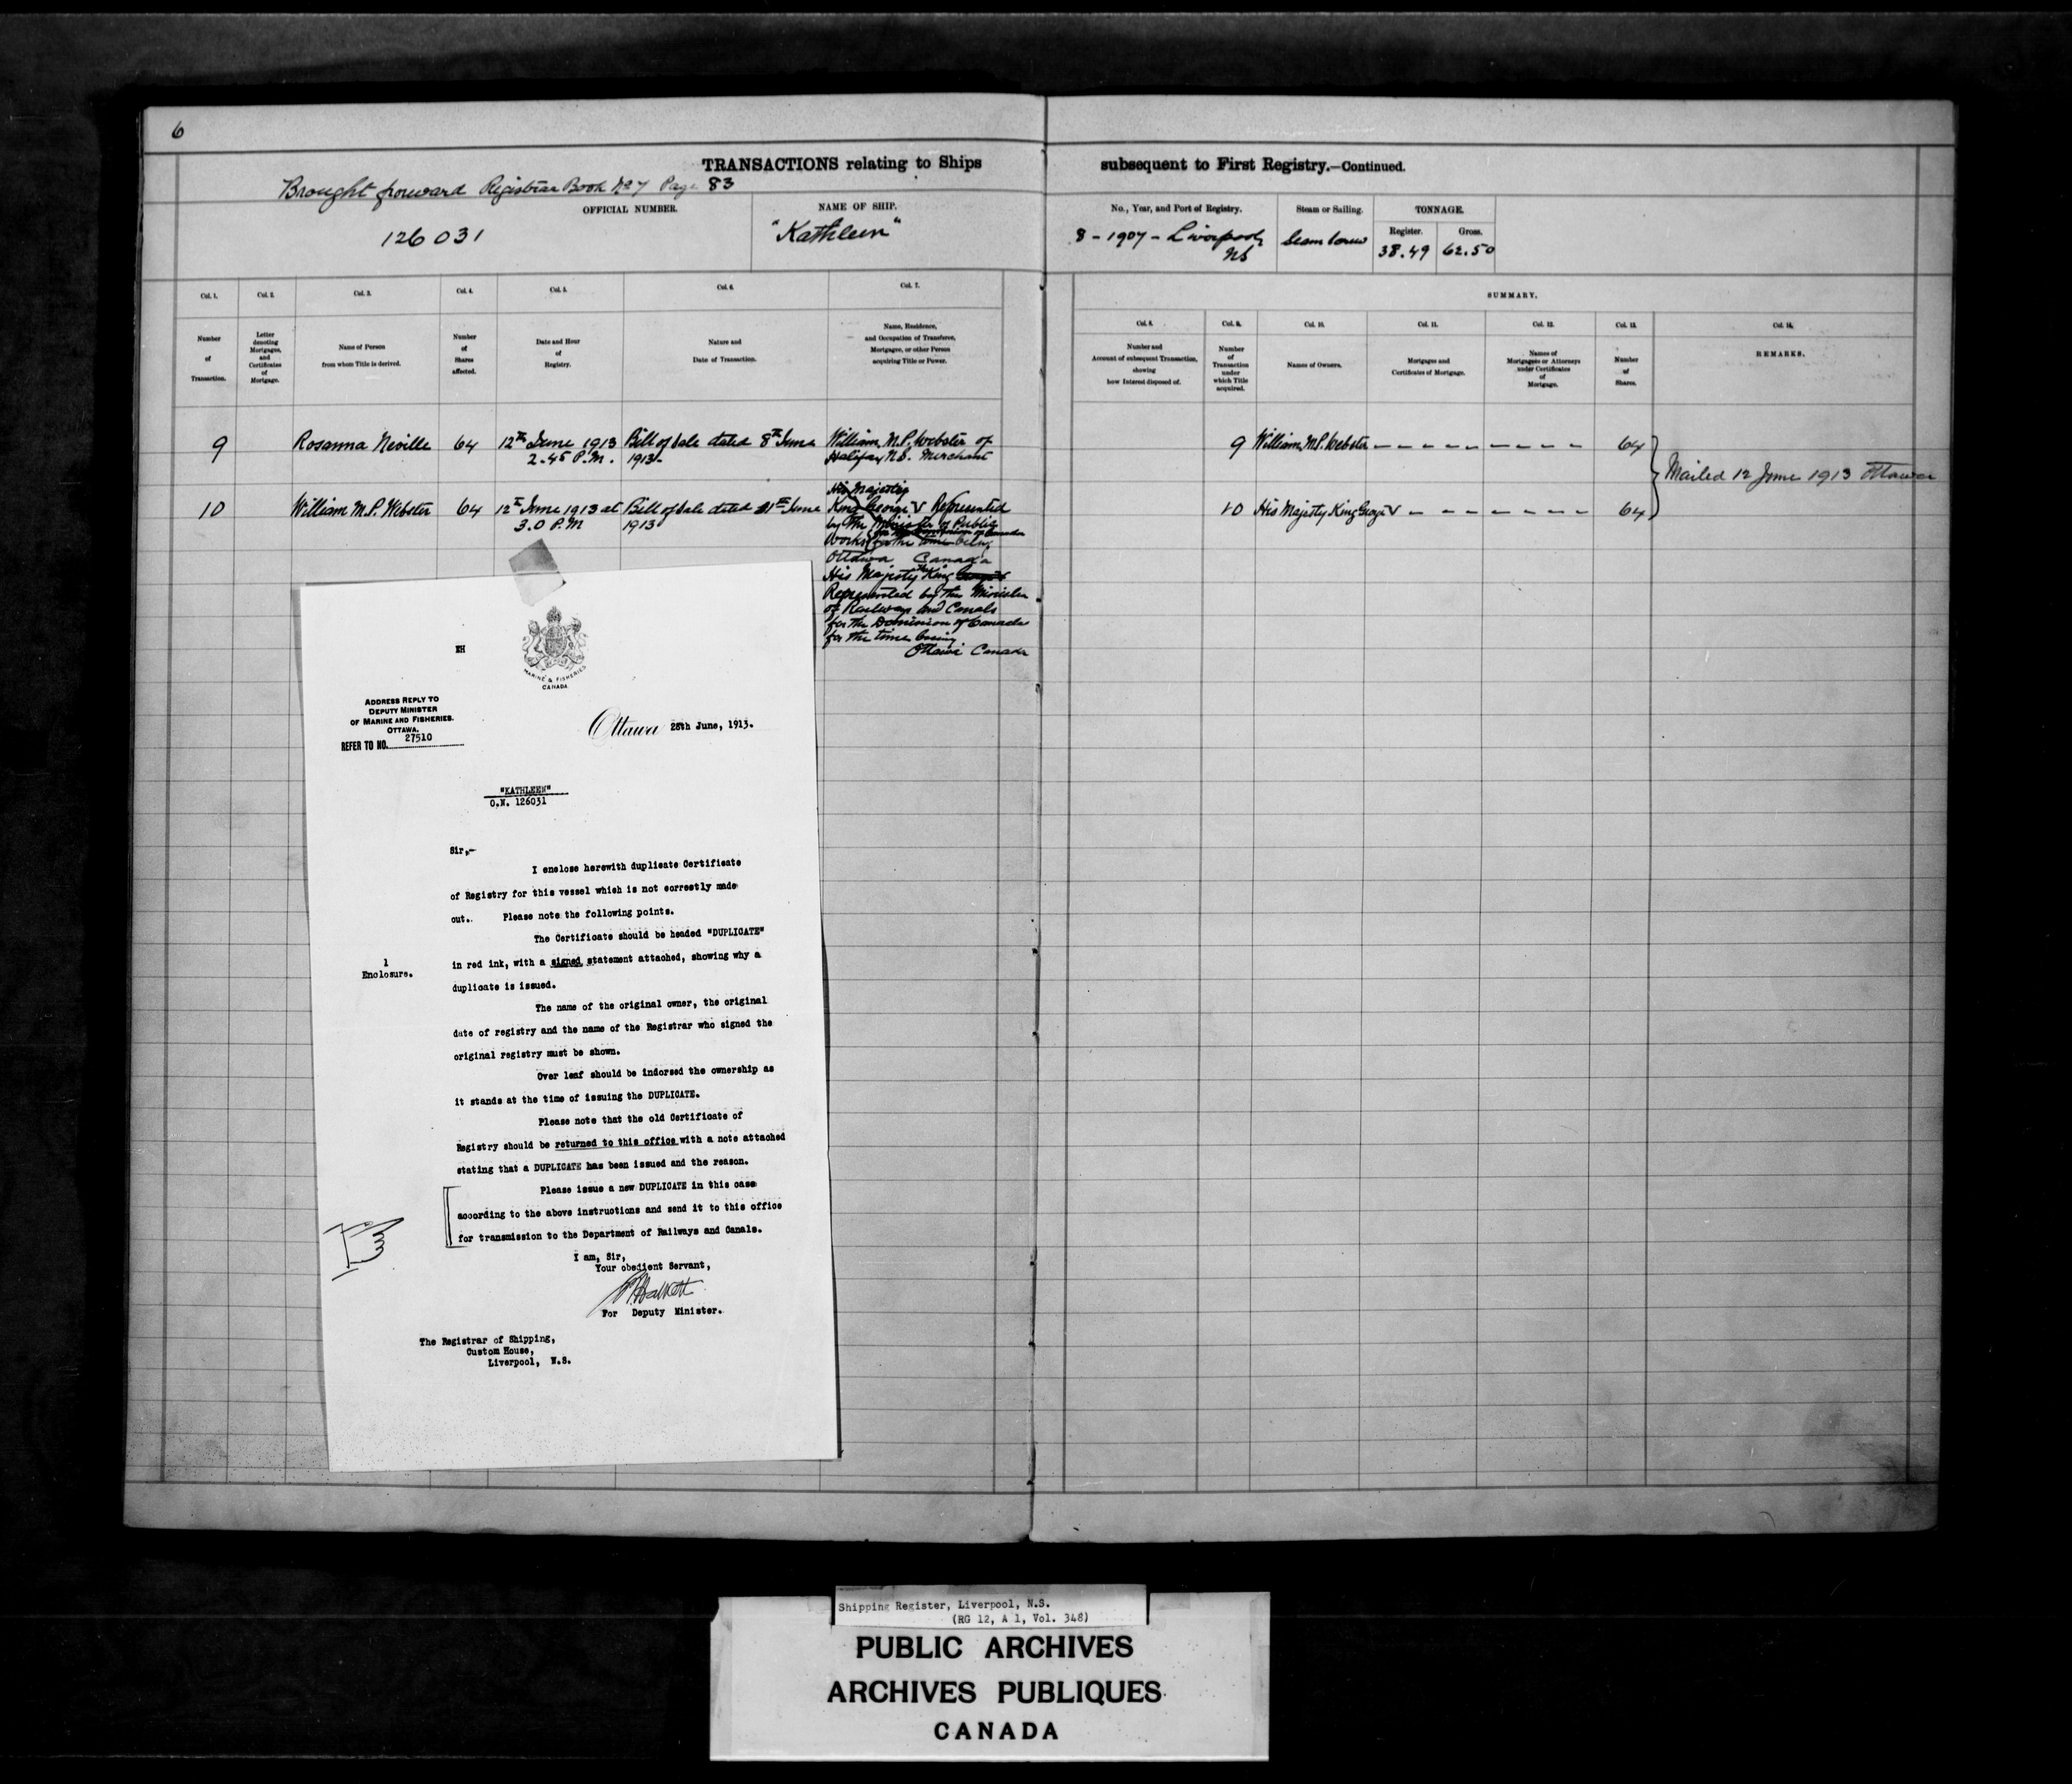 6
TRANSACTIONS relating to Ships subsequent to First Registry.—Continued.
Brought forward Registrar Book No 7 Page 83
OFFICIAL NUMBER.
126031
NAME OF SHIP.
"Kathleen"
No., Year, and Port of Registry.
8 - 1907 - Liverpool
NS
Steam or Sailing.
Steam Screw
TONNAGE.
Register.
38.49
Gross.
62.50
Col. 1. Col. 2. Col. 3. Col. 4. Col. 5. Col. 6. Col. 7.
Number
of
Transaction.
Letter
denoting
Mortgages,
and
Certificates
of
Mortgage.
Name of Person
from whom Title is derived.
Number
of
Shares
affected.
Date and Hour
of
Registry.
Nature and
Date of Transaction.
Name, Residence,
and Occupation of Transferee,
Mortgagee, or other Person
acquiring Title or Power.
SUMMARY.
Col. 8. Col. 9. Col. 10. Col. 11. Col. 12. Col. 13. Col. 14.
Number and
Account of subsequent Transaction,
showing
how Interest disposed of.
Number
of
Transaction
under
which Title
acquired.
Names of Owners.
Mortgages and
Certificates of Mortgage.
Names of
Mortgagees or Attorneys
under Certificates
of
Mortgage.
Number
of
Shares.
REMARKS.
9 Rosanna Neville 64 12th June 1913 Bill of Sale dated 8th June William M.P. Webster of
2.45 P.M. 1913 Halifax N.S. Merchant
9 William M.P. Webster 64
Mailed 12 June 1913 Ottawa
10 William M.P. Webster 64 12th June 1913 at Bill of Sale dated 11th June
3.0 P.M 1913
His Majesty
King George V Represented
by the Minister of Public
Works for the time being
Ottawa Canada
His Majesty the King George V
Represented by the Minister
of Railways and Canals
for the Dominion of Canada
for the time being
Ottawa Canada
10 His Majesty King George V 64
EH
MARINE & FISHERIES
CANADA
ADDRESS REPLY TO
DEPUTY MINISTER
OF MARINE AND FISHERIES.
OTTAWA.
REFER TO NO. 27510
Ottawa 28th June, 1913.
"KATHLEEN"
O.N. 126031
Sir,-
I enclose herewith duplicate Certificate
of Registry for this vessel which is not correctly made
out. Please note the following points.
The Certificate should be headed "DUPLICATE"
1
Enclosure.
in red ink, with a signed statement attached, showing why a
duplicate is issued.
The name of the original owner, the original
date of registry and the name of the Registrar who signed the
original registry must be shown.
Over leaf should be indorsed the ownership as
it stands at the time of issuing the DUPLICATE.
Please note that the old Certificate of
Registry should be returned to this office with a note attached
stating that a DUPLICATE has been issued and the reason.
Please issue a new DUPLICATE in this case
according to the above instructions and send it to this office
for transmission to the Department of Railways and Canals.
I am, Sir,
Your obedient Servant,
For Deputy Minister.
The Registrar of Shipping,
Custom House,
Liverpool, N.S.
Shipping Register, Liverpool, N.S.
(RG 12, A 1, Vol. 348)
PUBLIC ARCHIVES
ARCHIVES PUBLIQUES
CANADA